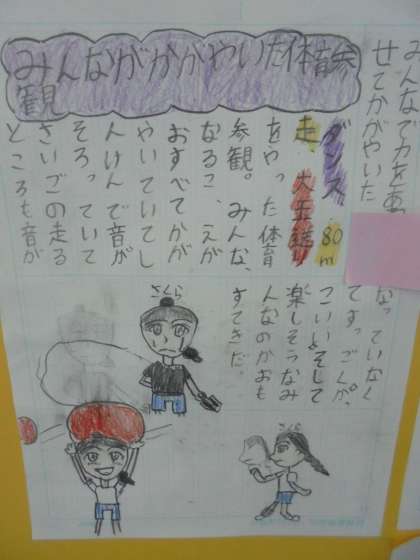 みんながかがやいた体育参
観
みんなで力を
せてかがやいた
ダンス 80m
走、大玉送り
をやった体育
参観。みんな、
なるこ、えが
おすべてかが
やいていてし
んけんで音が
そろっていて
さいごの走る
ところも音が
なっていなく
てすっごくが、
っこいいとそして
楽しそうなみ
んなのかおも
すてきだ。
さくら
さくら